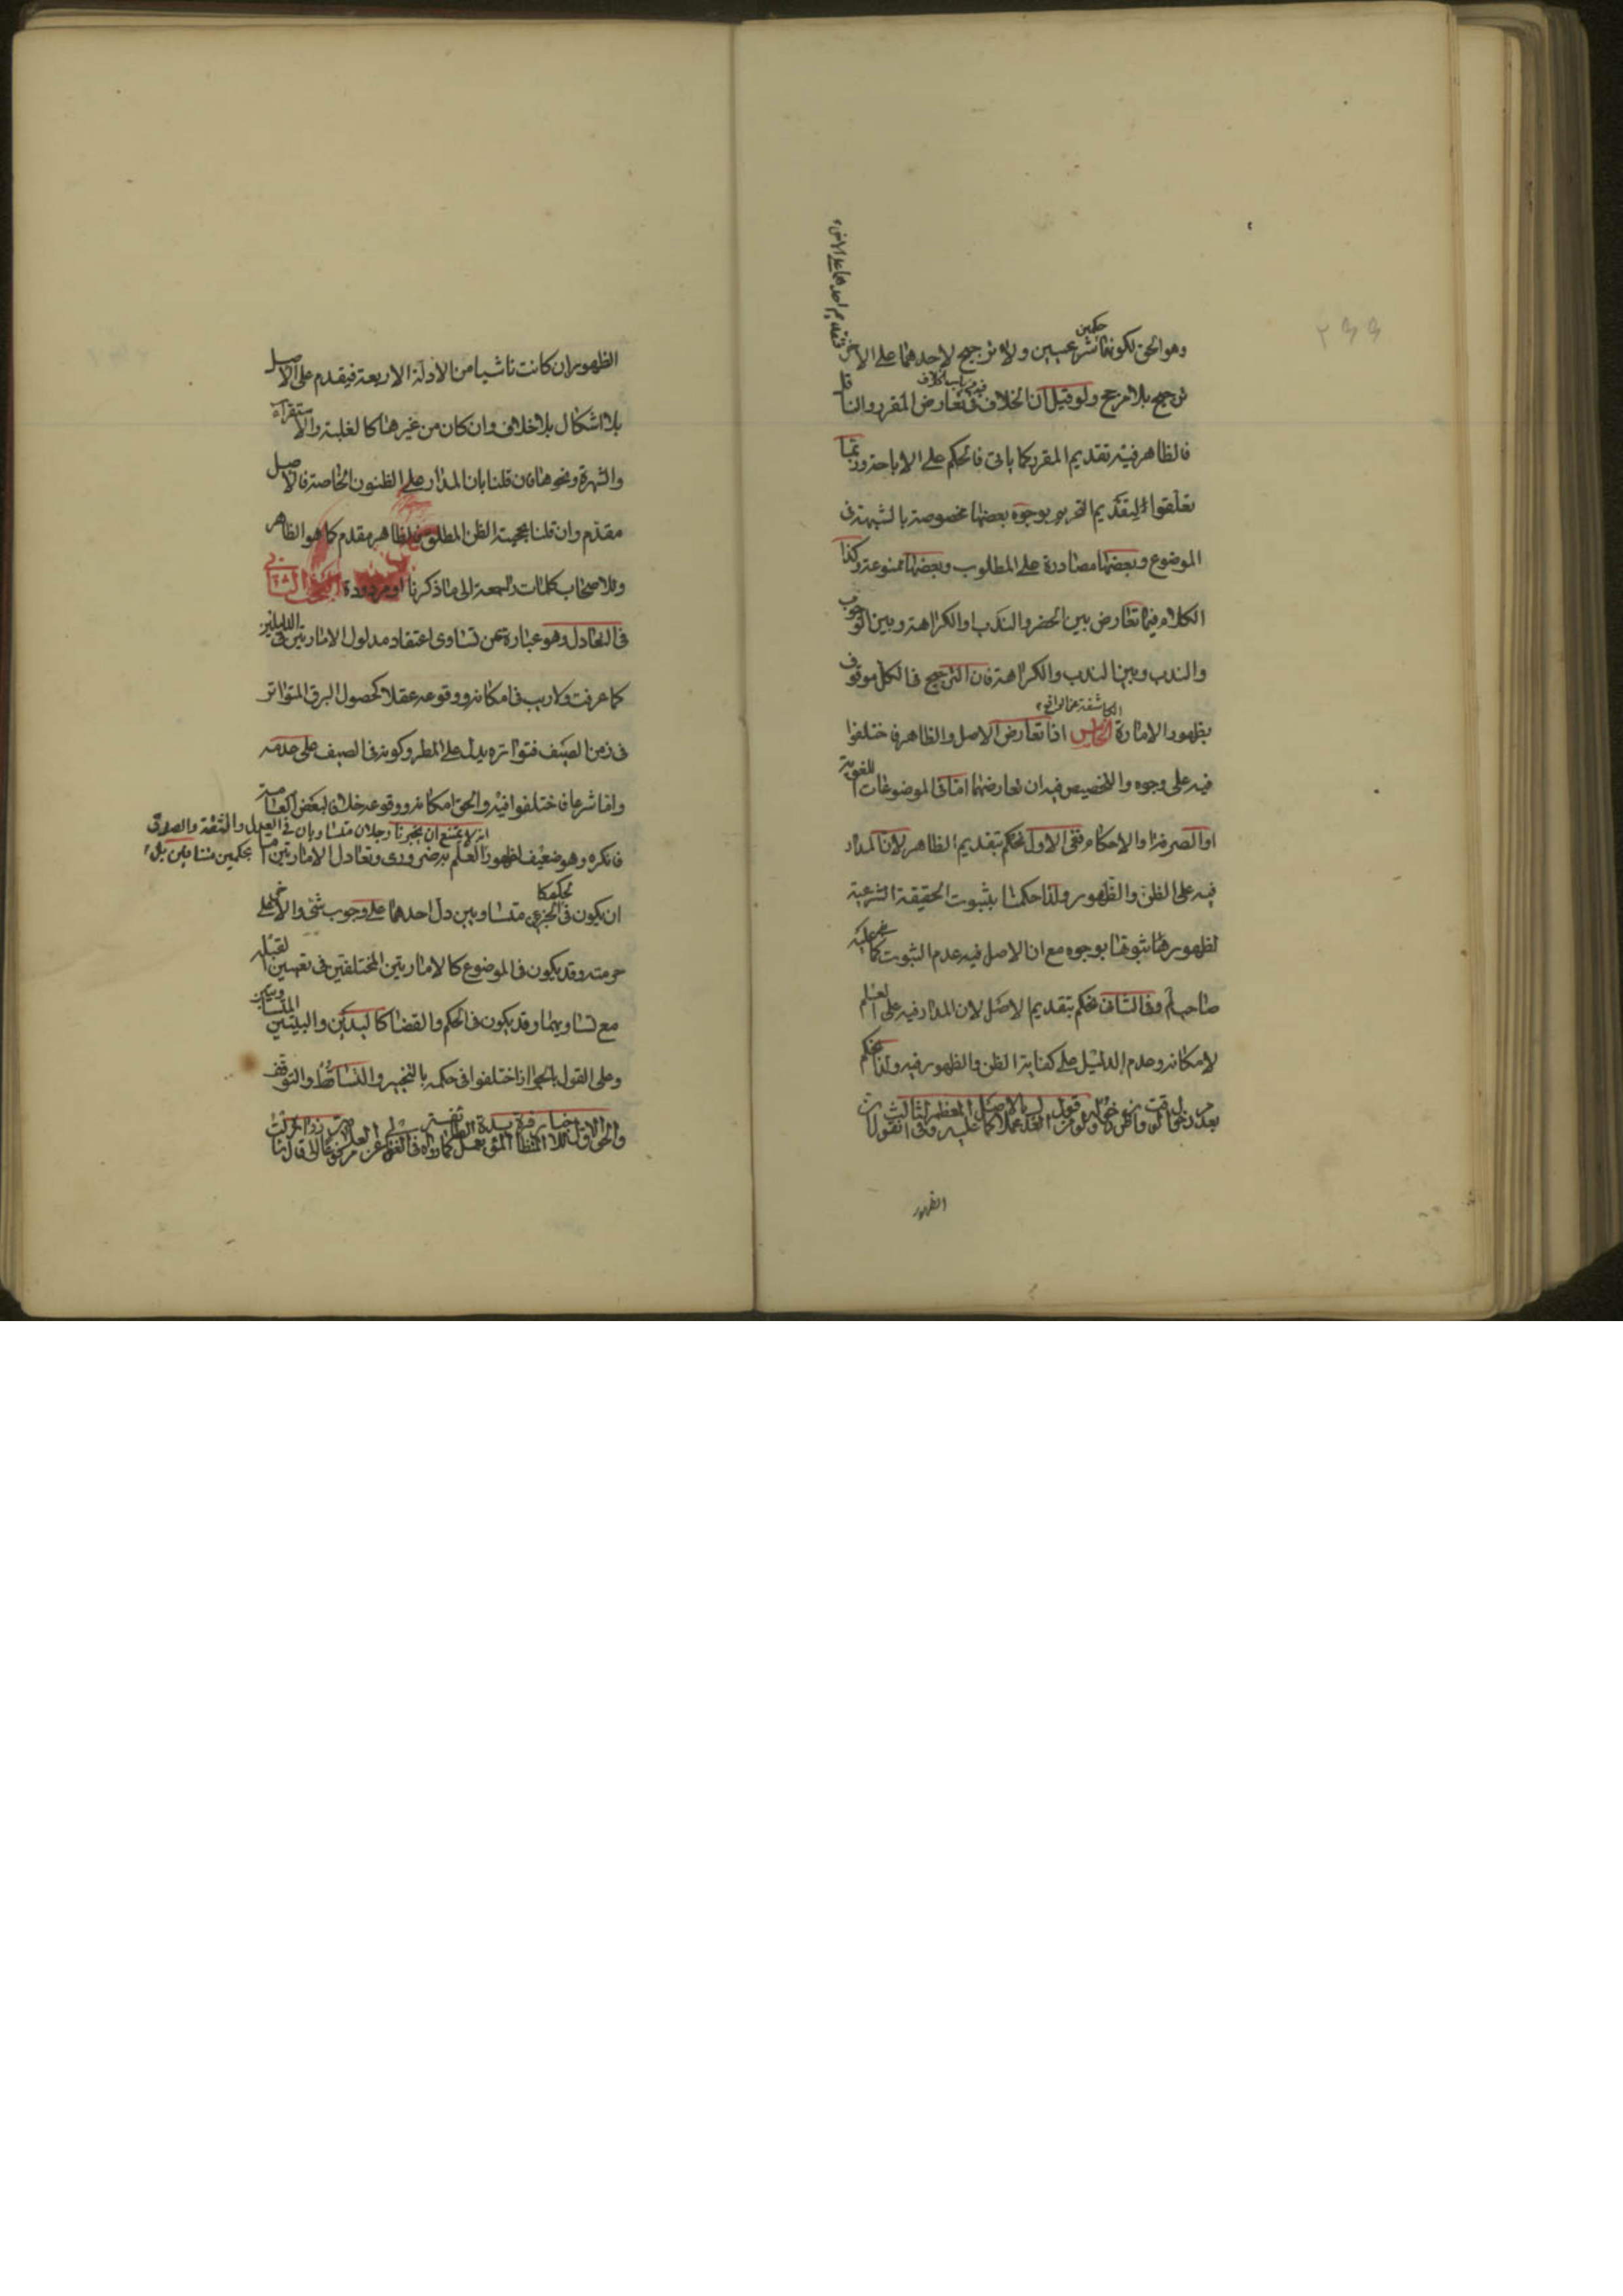 ۲۹۹
وهو الحق لكونهما حكمين شرعيين ولا ترجيح لاحدهما على الاخر
فتقديم احدهما على الاخر
ترجيح بلا مرجح ولو قيل ان الخلاف فيه من باب الخلاف في تعارض المقرر والناقل
فالظاهر فيه تقديم المقرر كما ياتى فالحكم على الاباحة وربما
تعلقوا لتقديم التحريم بوجوه بعضها مخصوصة بالشبهة فى
الموضوع وبعضها مصادرة على المطلوب وبعضها ممنوعة وكذا
الكلام فيما تعارض بين الحضر والندب او الكراهة وبين الوجوب
والندب وبين الندب والكراهة فان الترجيح فى الكل موقوف
بظهور الامارة الكاشفة عن الواقع الخامس اذا تعارض الاصل والظاهر فاختلفوا
فيه على وجوه والتخصيص فيه ان تعارضهما اما فى الموضوعات اللغوية
او الصرفة او الاحكام ففى الاول نحكم بتقديم الظاهر لان المدار
فيه على الظن والظهور ولذا حكمنا بثبوت الحقيقة الشرعية
لظهورها ثبوتها بوجوه مع ان الاصل فيه عدم الثبوت كما
صاحب لم وفى الثانى نحكم بتقديم الاصل لان المدار فيه على العلم
لامكانه وعدم الدليل على كفاية الظن والظهور فيه ولذا نحكم
بعدم دخول الوقت
الظهور
الظهور ان كانت ناشيا من الادلة الاربعة فيقدم على الاصل
بلا اشكال بلا خلاف وان كان من غيرها كالغلبة والاستقراء
والشهرة ونحوها فان قلنا بان المدار على الظنون الخاصة فالاصل
مقدم وان قلنا بحجية الظن المطلق فالظاهر مقدم كما هو الظاهر
وللاصحاب كلمات راجعة الى ما ذكرنا او مردودة المبحث الثانى
فى التعادل وهو عبارة عن تساوى اعتقاد مدلول الامارتين فى الدليلين
كما عرفت ولا ريب فى امكانه ووقوعه عقلا كحصول البرق المتواتر
فى زمن الصيف فتواتره يدل على المطر وكونه فى الصيف على عدمه
واما شرعا فاختلفوا فيه والحق امكانه ووقوعه خلافا لبعض العامة
فانكره وهو ضعيف لظهور العلم به ضرورى وتعادل الامارتين اما
انه لا يمتنع ان يخبرنا رجلان متساويان فى العدل والثقة والصدق
بحكمين متنافيين بل
ان يكون فى الحكم كالخبرين متساويين دل احدهما على وجوب شئ والاخر على
حرمته وقد يكون فى الموضوع كالامارتين المختلفتين فى تعيين القبلة
مع تساويهما وقد يكون فى الحكم والقضا كاليدين والبينتين المتساويتين
وعلى القول بالجواز اختلفوا فى حكمه بالتخيير والتساقط والتوقف
والحق الاول